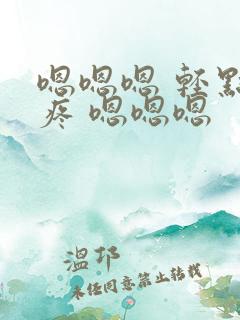 嗯嗯嗯 輕點
疼 嗯嗯嗯
溫邛
未任同意禁止转载